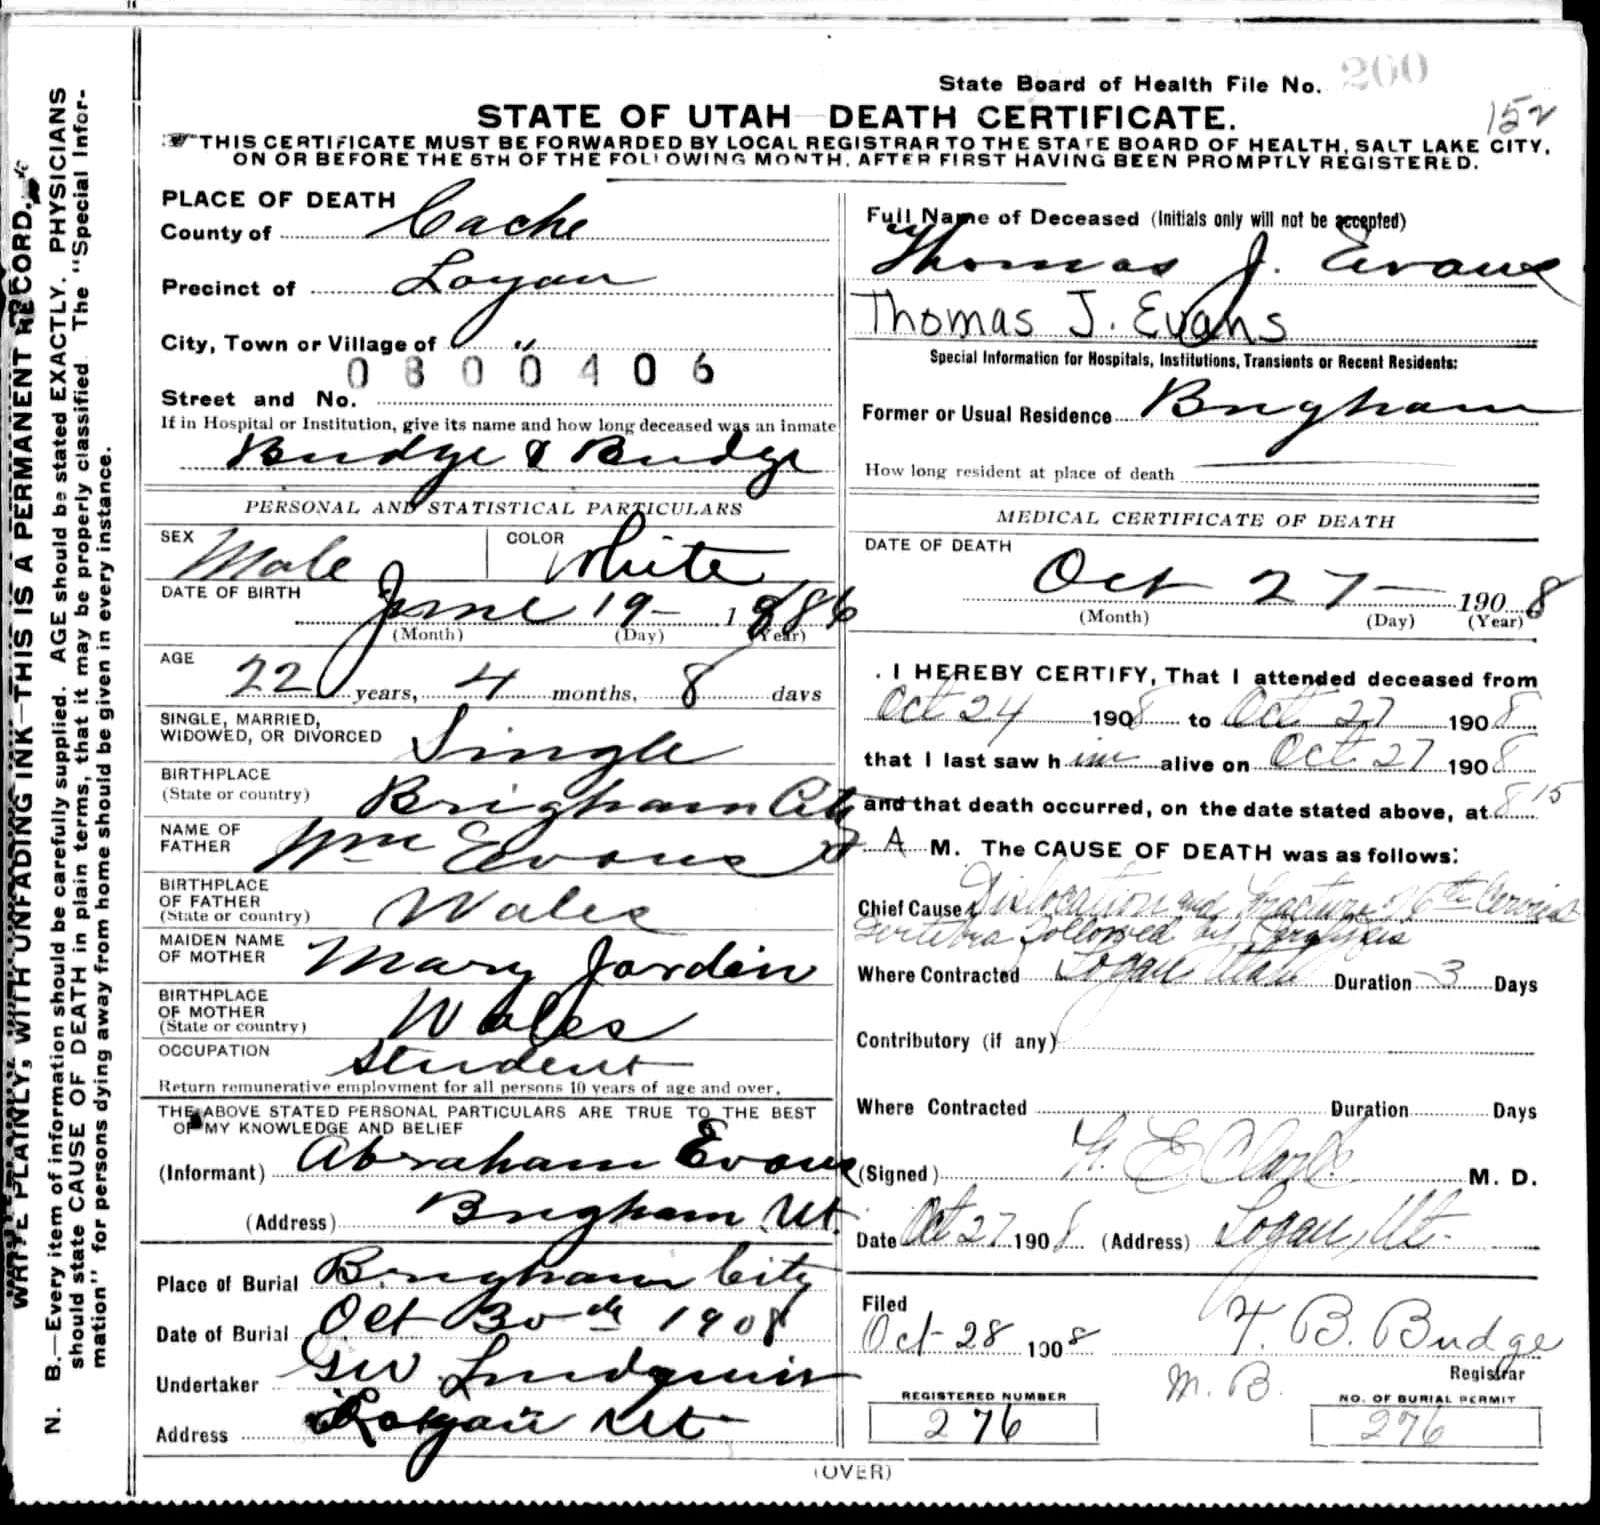 State Board of Health File No. 260
152
STATE OF UTAH—DEATH CERTIFICATE.
THIS CERTIFICATE MUST BE FORWARDED BY LOCAL REGISTRAR TO THE STATE BOARD OF HEALTH, SALT LAKE CITY,
ON OR BEFORE THE 5TH OF THE FOLLOWING MONTH, AFTER FIRST HAVING BEEN PROMPTLY REGISTERED.
WRITE PLAINLY, WITH UNFADING INK—THIS IS A PERMANENT RECORD.
N. B.—Every item of information should be carefully supplied. AGE should be stated EXACTLY. PHYSICIANS
should state CAUSE OF DEATH in plain terms, that it may be properly classified. The "Special Infor-
mation" for persons dying away from home should be given in every instance.
PLACE OF DEATH
County of Cache
Precinct of Logan
City, Town or Village of "
0800406
Street and No.
If in Hospital or Institution, give its name and how long deceased was an inmate
Budge & Budge
PERSONAL AND STATISTICAL PARTICULARS
SEX Male COLOR White
DATE OF BIRTH June 19 — 1886
(Month) (Day) (Year)
AGE 22 years, 4 months, 8 days
SINGLE, MARRIED,
WIDOWED, OR DIVORCED Single
BIRTHPLACE
(State or country) Brigham City
NAME OF
FATHER Wm Evans
BIRTHPLACE
OF FATHER
(State or country) Wales
MAIDEN NAME
OF MOTHER Mary Jorden
BIRTHPLACE
OF MOTHER
(State or country) Wales
OCCUPATION Student
Return remunerative employment for all persons 10 years of age and over.
THE ABOVE STATED PERSONAL PARTICULARS ARE TRUE TO THE BEST
OF MY KNOWLEDGE AND BELIEF
(Informant) Abraham Evans
(Address) Brigham Ut.
Place of Burial Brigham City
Date of Burial Oct 30th 1908
Undertaker GW Lindquist
Address Logan Ut
Full Name of Deceased (Initials only will not be accepted)
Thomas J. Evans
Thomas J. Evans
Special Information for Hospitals, Institutions, Transients or Recent Residents:
Former or Usual Residence Brigham
How long resident at place of death
MEDICAL CERTIFICATE OF DEATH
DATE OF DEATH
Oct 27 — 1908
(Month) (Day) (Year)
I HEREBY CERTIFY, That I attended deceased from
Oct 24 1908 to Oct 27 1908
that I last saw him alive on Oct 27 1908
and that death occurred, on the date stated above, at 8 15
A M. The CAUSE OF DEATH was as follows:
Chief Cause Dislocation and fracture of 6th Cervical
vertebra followed by Paralysis
Where Contracted Logan Utah Duration 3 Days
Contributory (if any)
Where Contracted Duration Days
(Signed) E Clark M. D.
Date Oct 27 1908 (Address) Logan, Ut.
Filed
Oct 28 1908 T. B. Budge
Registrar
M. B.
REGISTERED NUMBER
276
NO. OF BURIAL PERMIT
276
(OVER)